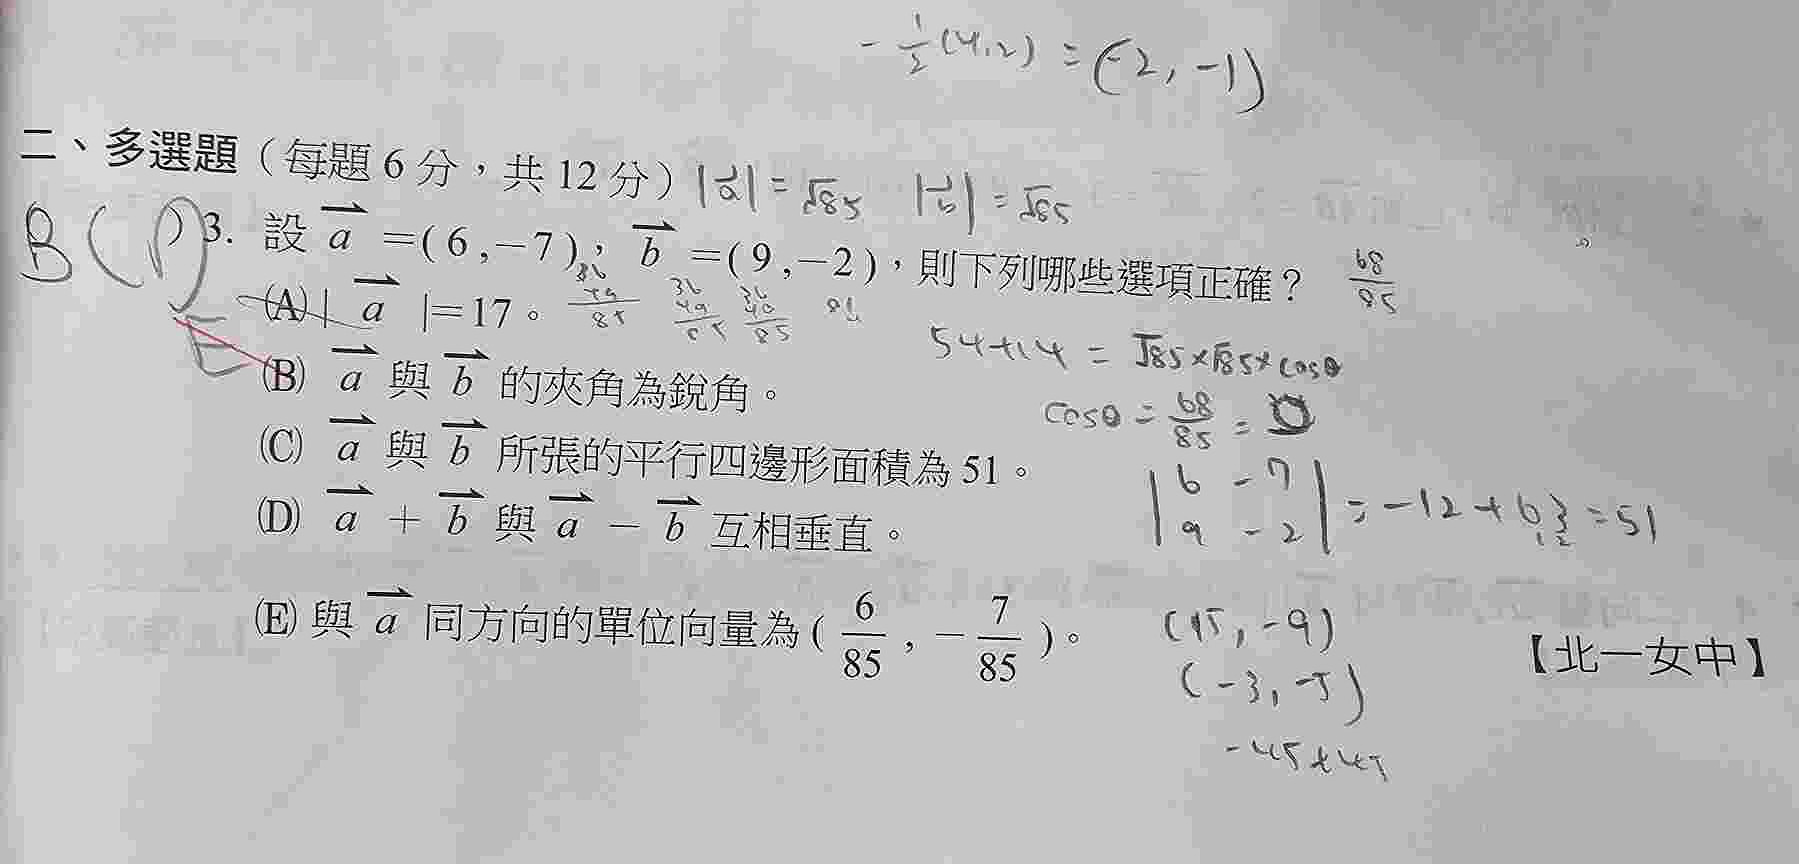 -1/2(4,2) = (-2,-1)
二、多選題(每題 6 分,共 12 分) |a⃗| = √85 |b⃗| = √85
B ( ) 3. 設 a⃗ =(6,-7),b⃗ =(9,-2),則下列哪些選項正確? 68/85
(A) | a⃗ |=17。 36 49 85 36 49 85 36 49 85 81
54+14 = √85×√85×cosθ
E (B) a⃗ 與 b⃗ 的夾角為銳角。
cosθ = 68/85 =
(C) a⃗ 與 b⃗ 所張的平行四邊形面積為 51。
|6 -7|
|9 -2| = -12+63 = 51
(D) a⃗ + b⃗ 與 a⃗ - b⃗ 互相垂直。
(E) 與 a⃗ 同方向的單位向量為 ( 6/85 , - 7/85 )。 (15,-9)
【北一女中】
(-3,-5)
-45+45